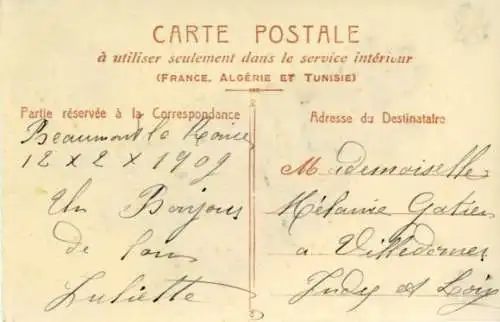 CARTE POSTALE
à utiliser seulement dans le service intérieur
(FRANCE, ALGÉRIE ET TUNISIE)
Partie réservée à la Correspondance
Beaumont la Ronce
12 x 2 x 1909
Un Bonjour
de
Juliette
Adresse du Destinataire
Mademoiselle
Mélanie Gatien
a Villedomer
Indre et Loire